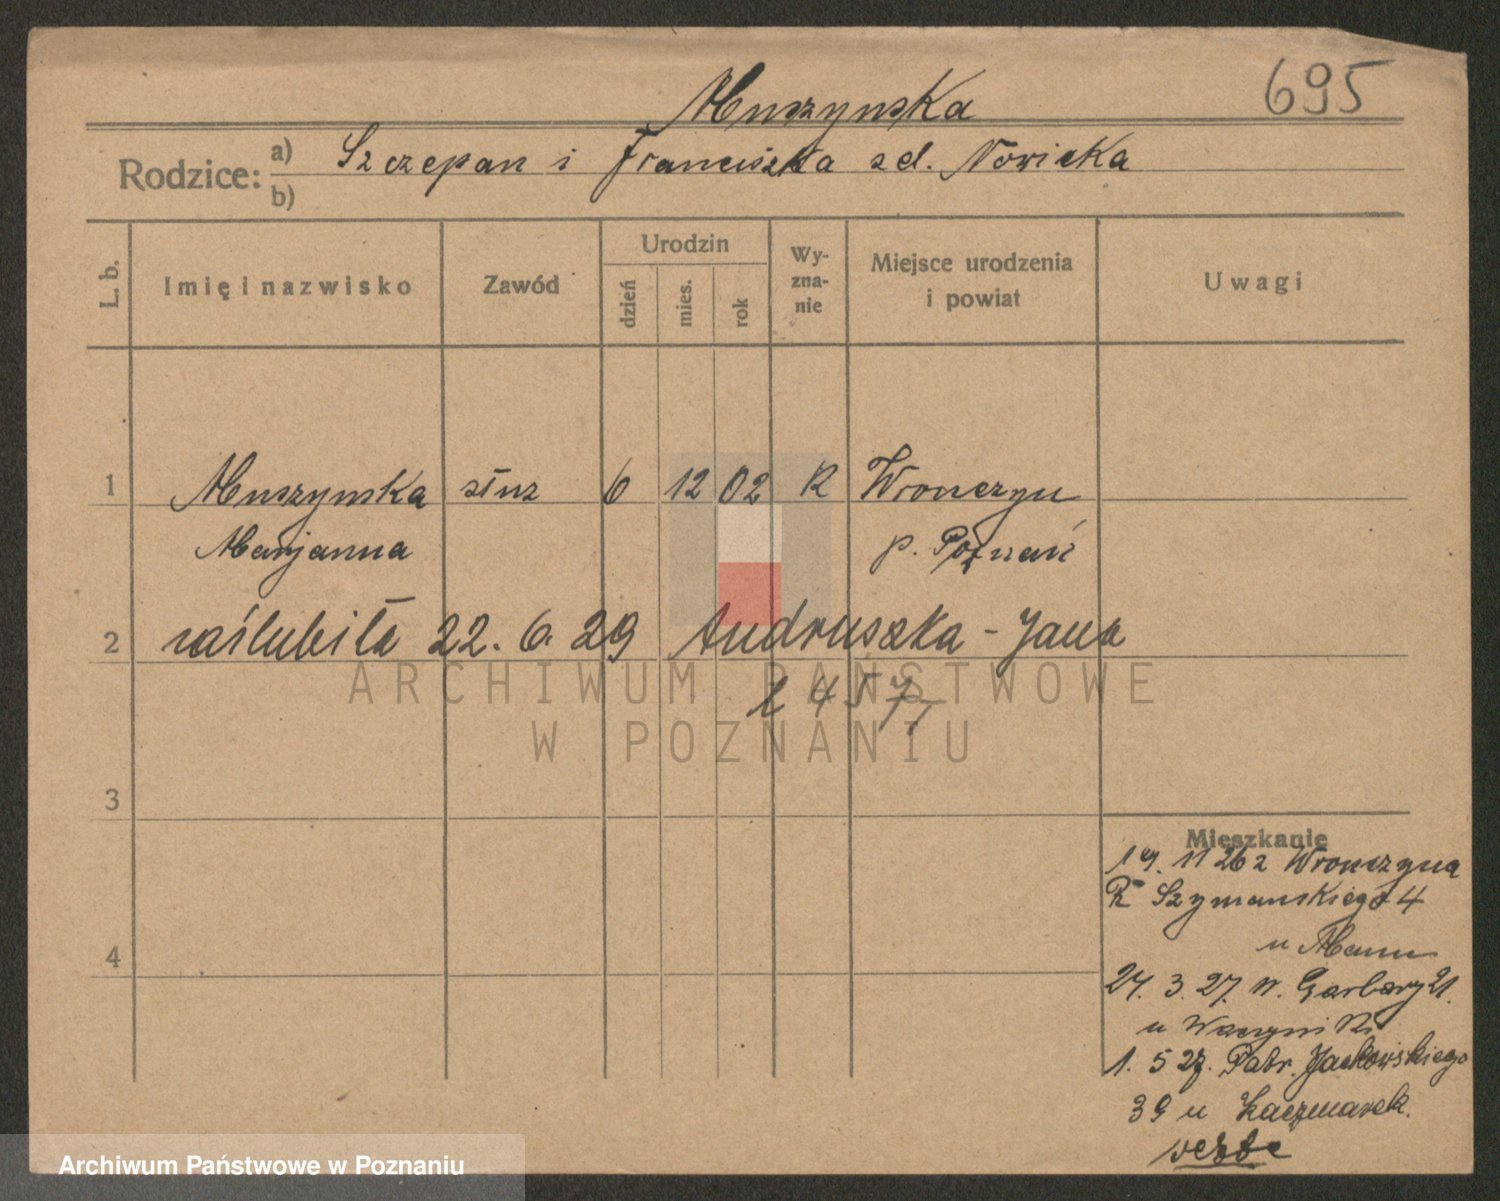 695
Muszynska
Rodzice: a) Szczepan i Franciszka zd. Nowicka
b)
L. b. Imię i nazwisko Zawód Urodzin dzień mies. rok Wy-zna-nie Miejsce urodzenia i powiat Uwagi
1 Muszynska służ 6 12 02 R Wronczyn
Marjanna p. Poznań
2 zaślubiła 22. 6. 29 Andruszka - Jana
ARCHIWUM PAŃSTWOWE
W POZNANIU
3
Mieszkanie
19. 11 26 z Wronczyna
Szymanskiego 4
4
u
24. 3. 27. Garbary 21.
u
1. 5 27. Patr. Jackowskiego
39 u Kaczmarek.
verte
Archiwum Państwowe w Poznaniu